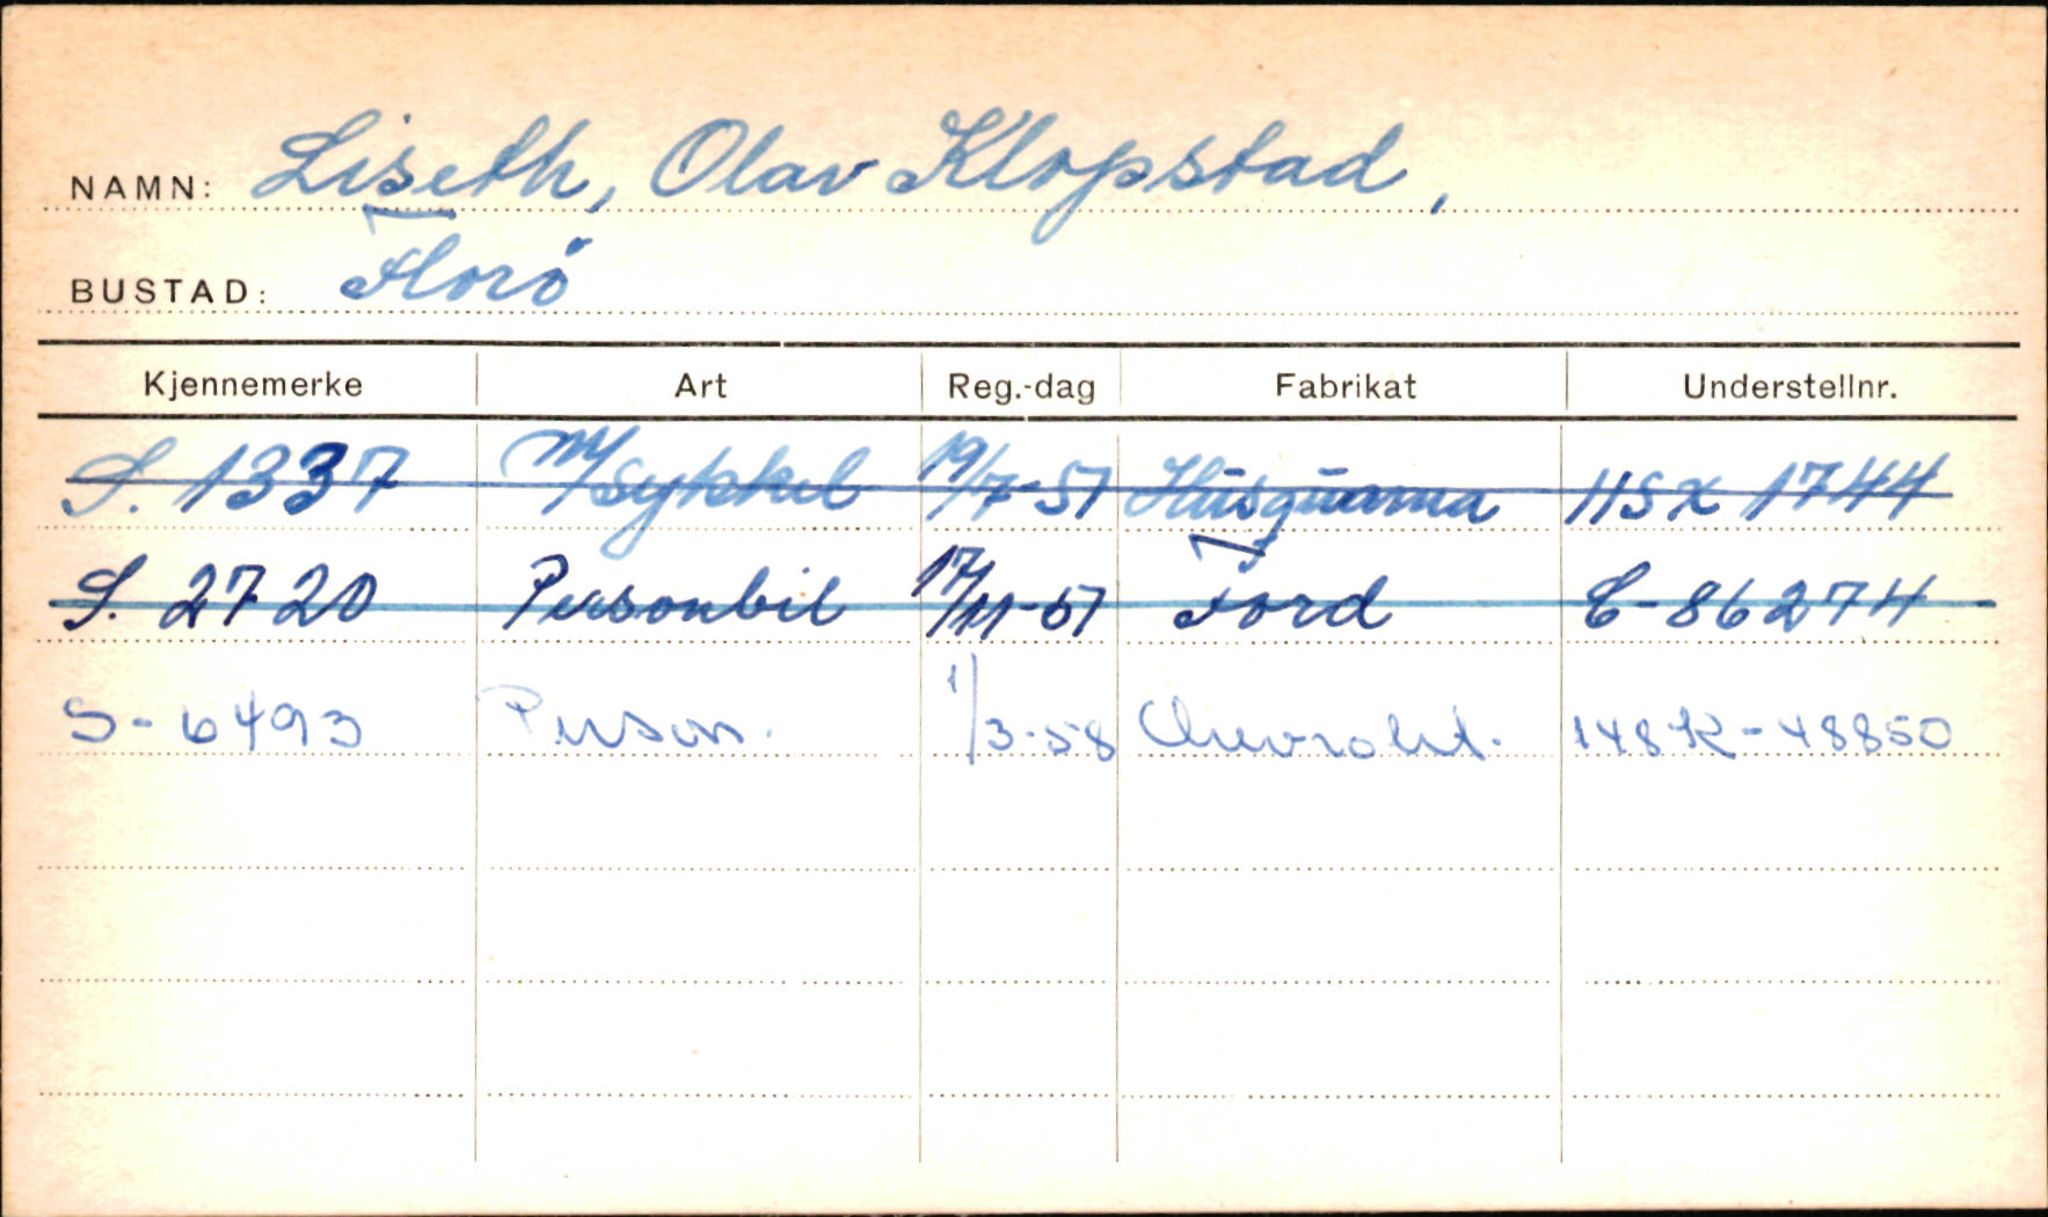 NAMN: Liseth, Olav Klopstad,
BUSTAD: Florö
Kjennemerke Art Reg.-dag Fabrikat Understellnr.
S. 1337 M/sykkel 19/7-57 Husquarna 11SX 1744
S. 2720 Personbil 17/11-57 Ford C-86274
S-6493 Person. 1/3-58 Chevrolet. 148K-48850